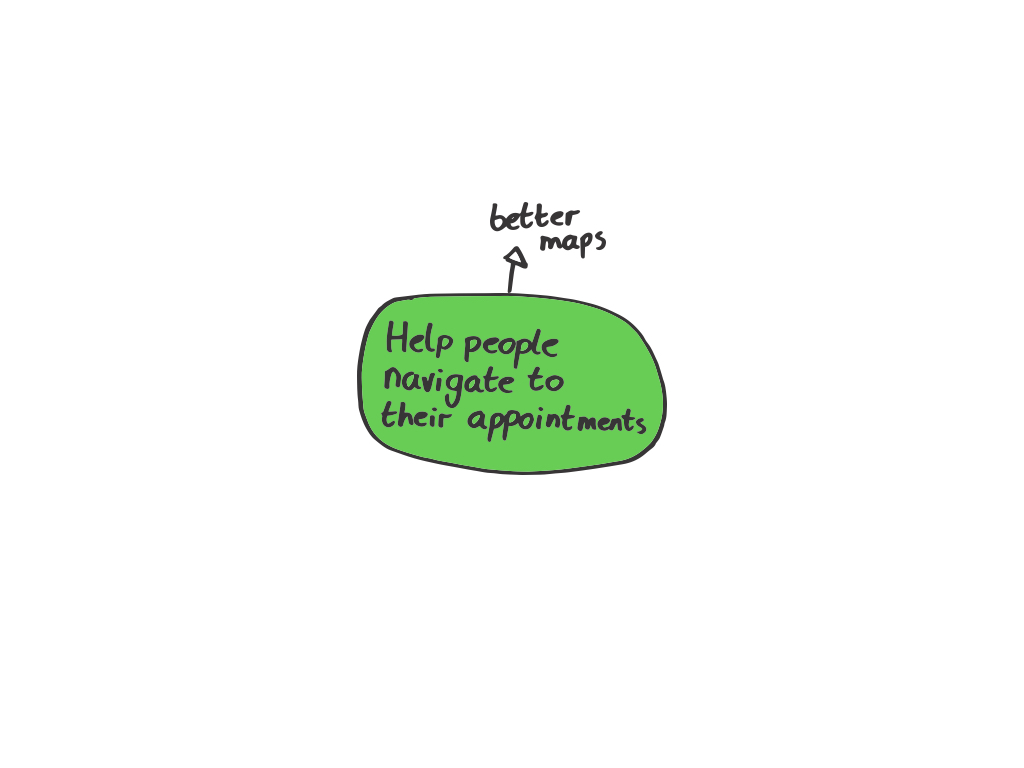 better
maps
Help people
navigate to
their appointments